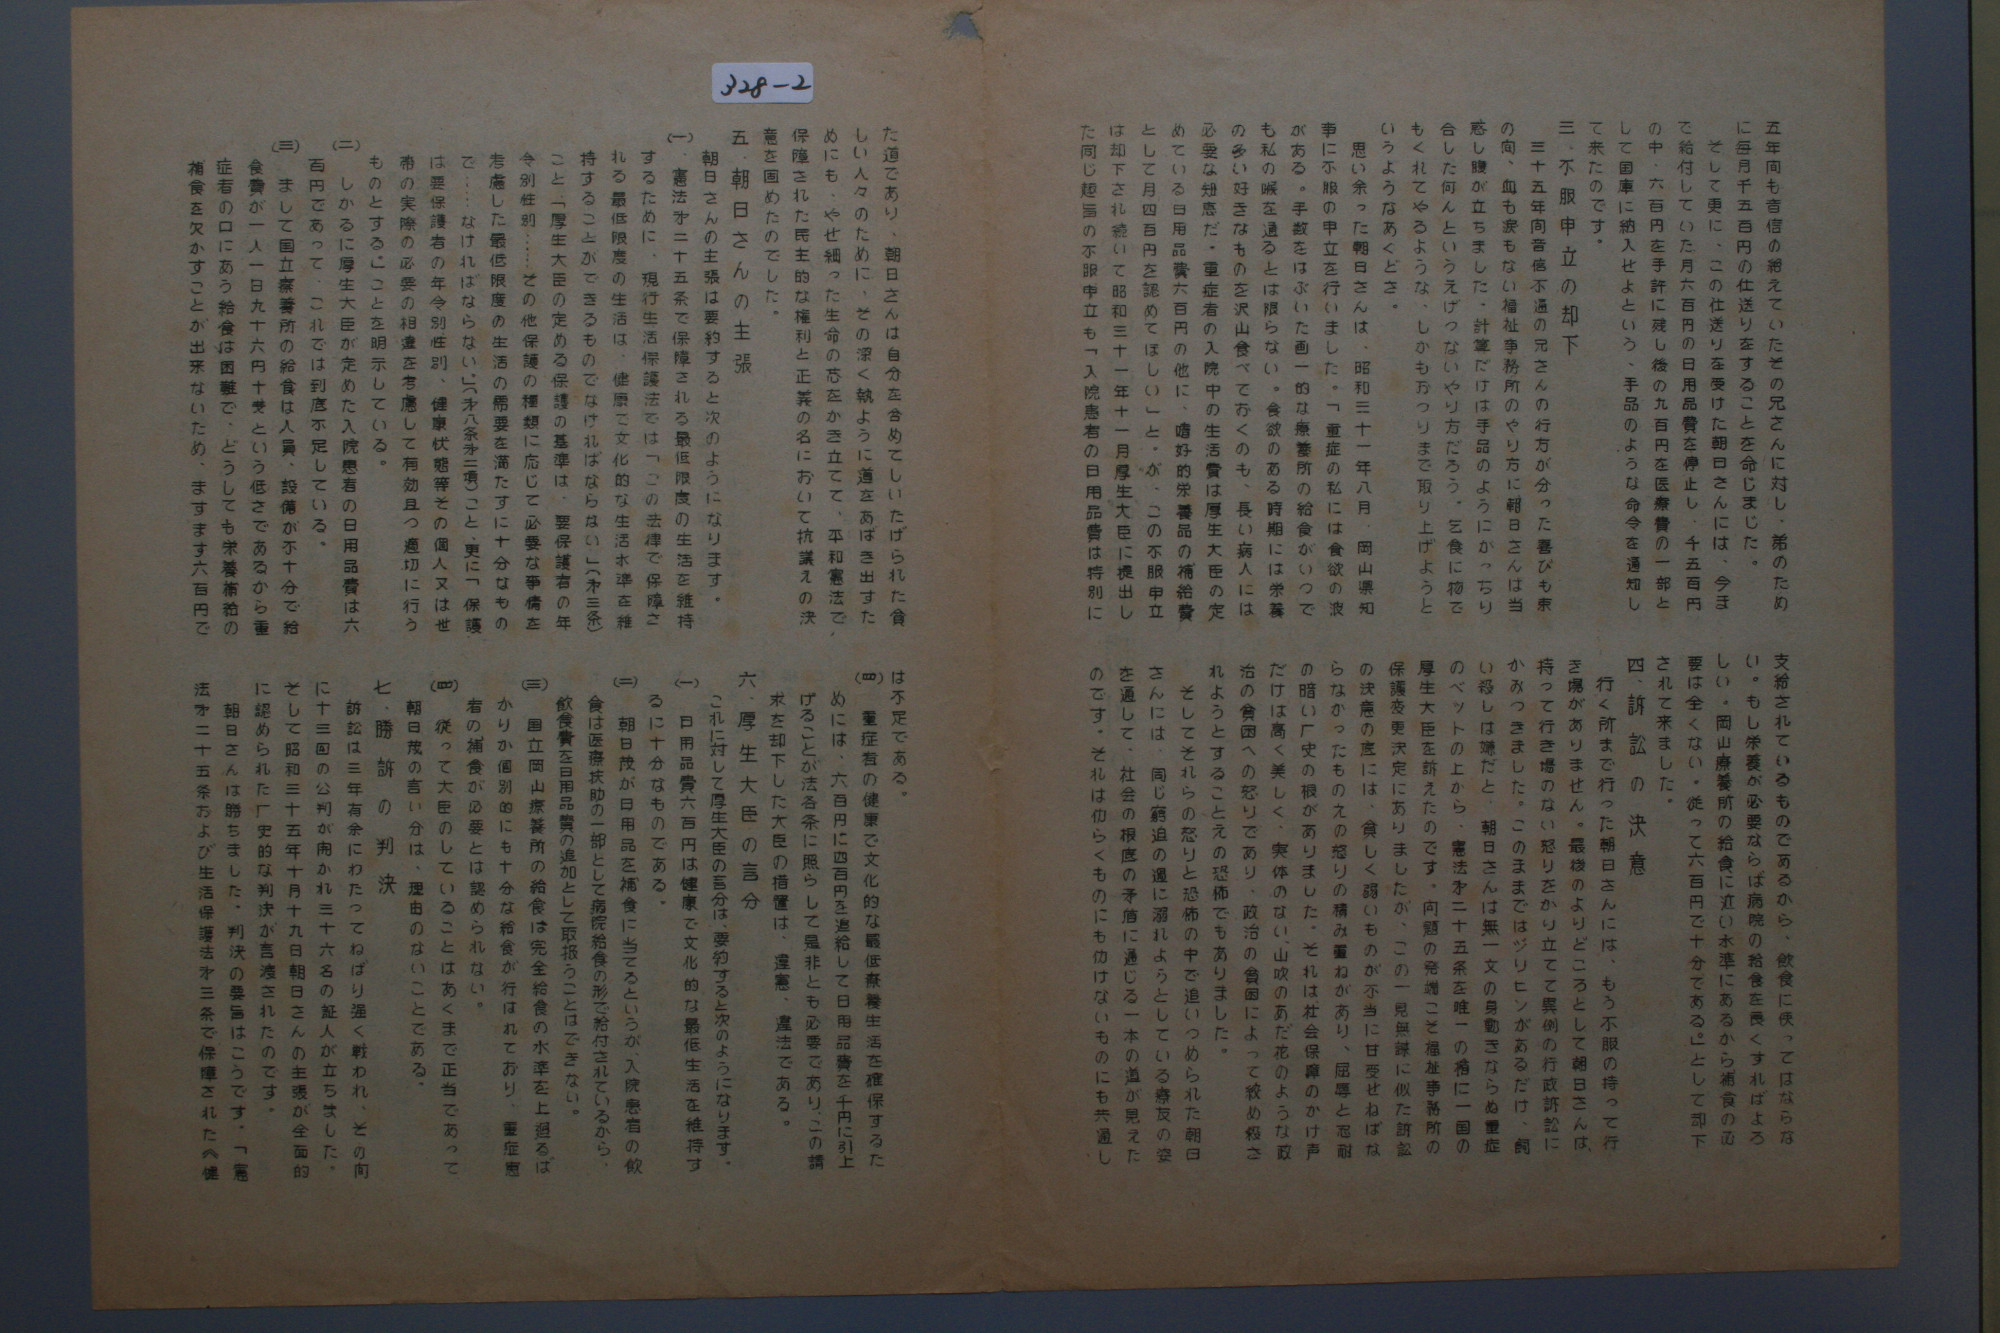 328-2
五年间も音信の絶えていたその兄さんに対し、弟のため
に毎月千五百円の仕送りをすることを命じました。
そして更に、この仕送りを受けた朝日さんには、今ま
で給付していた月六百円の日用品費を停止し、千五百円
の中、六百円を手許に残し後の九百円を医療費の一部と
して国庫に納入せよという、手品のような命令を通知し
て来たのです。
三、不服申立の却下
三十五年间音信不通の兄さんの行方が分った喜びも束
の间、血も涙もない福祉事務所のやり方に朝日さんは当
惑し腹が立ちました。計算だけは手品のようにがっちり
合した何んというえげつないやり方だろう。乞食に物で
もくれてやるような、しかもおつりまで取り上げようと
いうようなあくどさ。
思い余った朝日さんは、昭和三十一年八月、岡山県知
事に不服の申立を行いました。「重症の私には食欲の波
がある。手数をはぶいた画一的な療養所の給食がいつで
も私の喉を通るとは限らない。食欲のある時期には栄養
の多い好きなものを沢山食べておくのも、長い病人には
必要な知恵だ。重症者の入院中の生活費は厚生大臣の定
めている日用品費六百円の他に、嗜好的栄養品の補給費
として月四百円を認めてほしい」と。が、この不服申立
は却下され続いて昭和三十一年十一月厚生大臣に提出し
た同じ趣旨の不服申立も「入院患者の日用品費は特別に
支給されているものであるから、飲食に使ってはならな
い。もし栄養が必要ならば病院の給食を良くすればよろ
しい。岡山療養所の給食に近い水準にあるから補食の必
要は全くない。従って六百円で十分である。」として却下
されて来ました。
四、訴訟の決意
行く所まで行った朝日さんには、もう不服の持って行
き場がありません。最後のよりどころとして朝日さんは、
持って行き場のない怒りをかり立てて異例の行政訴訟に
かみつきました。このままではジリヒンがあるだけ、飼
い殺しは嫌だと、朝日さんは無一文の身動きならぬ重症
のベットの上から、憲法才二十五条を唯一の楯に一国の
厚生大臣を訴えたのです。问題の発端こそ福祉事務所の
保護変更決定にありましたが、この一見無謀に似た訴訟
の決意の底には、貧しく弱いものが不当に甘受せねばな
らなかったものえの怒りの積み重ねがあり、屈辱と忍耐
の暗い厂史の根がありました。それは社会保障のかけ声
だけは高く美しく、実体のない山吹のあだ花のような政
治の貧困への怒りであり、政治の貧困によって絞め殺さ
れようとすることえの恐怖でもありました。
そしてそれらの怒りと恐怖の中で追いつめられた朝日
さんには、同じ窮迫の渦に溺れようとしている療友の姿
を通して、社会の根底の矛盾に通じる一本の道が見えた
のです。それは仂らくものにも仂けないものにも共通し
た道であり、朝日さんは自分を含めてしいたげられた貧
しい人々のために、その深く執ように道をあばき出すた
めにも、やせ細った生命の芯をかき立てて、平和憲法で
保障された民主的な権利と正義の名において抗議えの決
意を固めたのでした。
五、朝日さんの主張
朝日さんの主張は要約すると次のようになります。
(一)、憲法才二十五条で保障される最低限度の生活を維持
するために、現行生活保護法では「この法律で保障さ
れる最低限度の生活は、健康で文化的な生活水準を維
持することができるものでなければならない」(才三条)
こと「厚生大臣の定める保護の基準は、要保護者の年
令別性別……その他保護の種類に応じて必要な事情を
考慮した最低限度の生活の需要を満たすに十分なもの
で……なければならない」(才八条才二項)こと、更に「保護
は要保護者の年令別性別、健康状態等その個人又は世
帯の実際の必要の相違を考慮して有効且つ適切に行う
ものとする」ことを明示している。
(二)しかるに厚生大臣が定めた入院患者の日用品費は六
百円であって、これでは到底不足している。
(三)まして国立療養所の給食は人員、設備が不十分で給
食費が一人一日九十六円十戋という低さであるから重
症者の口にあう給食は困難で、どうしても栄養補給の
補食を欠かすことが出来ないため、ますます六百円で
は不足である。
(四)重症者の健康で文化的な最低療養生活を確保するた
めには、六百円に四百円を追給して日用品費を千円に引上
げることが法各条に照らして是非とも必要であり、この請
求を却下した大臣の措置は、違憲、違法である。
六、厚生大臣の言分
これに対して厚生大臣の言分は、要約すると次のようになります。
(一)日用品費六百円は健康で文化的な最低生活を維持す
るに十分なものである。
(二)朝日茂が日用品を補食に当てるというが、入院患者の飲
食は医療扶助の一部として病院給食の形で給付されているから、
飲食費を日用品費の追加として取扱うことはできない。
(三)国立岡山療養所の給食は完全給食の水準を上廻るば
かりか個別的にも十分な給食が行はれており、重症患
者の補食が必要とは認められない。
(四)従って大臣のしていることはあくまで正当であって
朝日茂の言い分は、理由のないことである。
七、勝訴の判決
訴訟は三年有余にわたってねばり强く戦われ、その间
に十三回の公判が開かれ三十六名の証人が立ちました。
そして昭和三十五年十月十九日朝日さんの主張が全面的
に認められた厂史的な判決が言渡されたのです。
朝日さんは勝ちました。判決の要旨はこうです。「憲
法才二十五条および生活保護法才三条で保障された《健